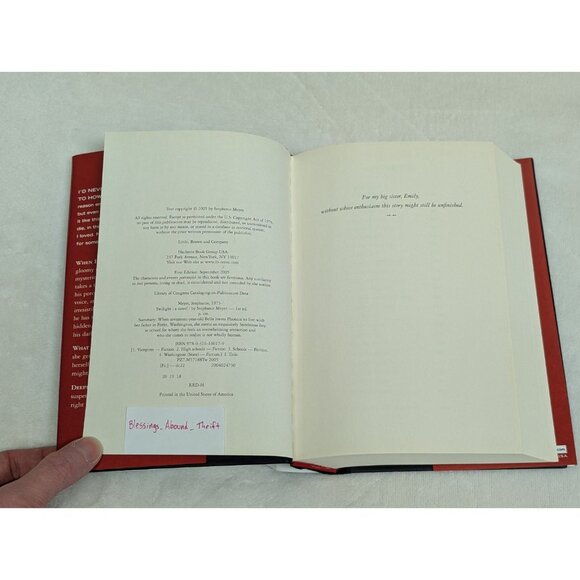 I'D NEVE
TO HOW
reason
but even
it like thi
die, in th
I loved.
for some
WHEN I
gloomy
mysteri
takes a
voice,
irresist
he has
hidden.
and she
WHAT
she ge
herself
DEEPL
suspe
right
Text copyright © 2005 by Stephenie Meyer
All rights reserved. Except as permitted under the U.S. Copyright Act of 1976,
no part of this publication may be reproduced, distributed, or transmitted in
any form or by any means, or stored in a database or retrieval system,
without the prior written permission of the publisher.
Little, Brown and Company
Hachette Book Group USA
237 Park Avenue, New York, NY 10017
Visit our Web site at www.lb-teens.com
First Edition: September 2005
The characters and events portrayed in this book are fictitious. Any similarity
to real persons, living or dead, is coincidental and not intended by the author.
Library of Congress Cataloging-in-Publication Data
Meyer, Stephenie, 1973–
Twilight : a novel / by Stephenie Meyer. — 1st ed.
p. cm.
Summary: When seventeen-year-old Bella leaves Phoenix to live with
her father in Forks, Washington, she meets an exquisitely handsome boy
at school for whom she feels an overwhelming attraction and
who she comes to realize is not wholly human.
ISBN 978-0-316-16017-9
[1. Vampires — Fiction. 2. High schools — Fiction. 3. Schools — Fiction.
4. Washington (State) — Fiction.] I. Title.
PZ7.M57188Tw 2005
[Fic] — dc22 2004024730
20 19 18
RRD-H
Printed in the United States of America
Blessings_Abound_Thrift
For my big sister, Emily,
without whose enthusiasm this story might still be unfinished.
.com
USA